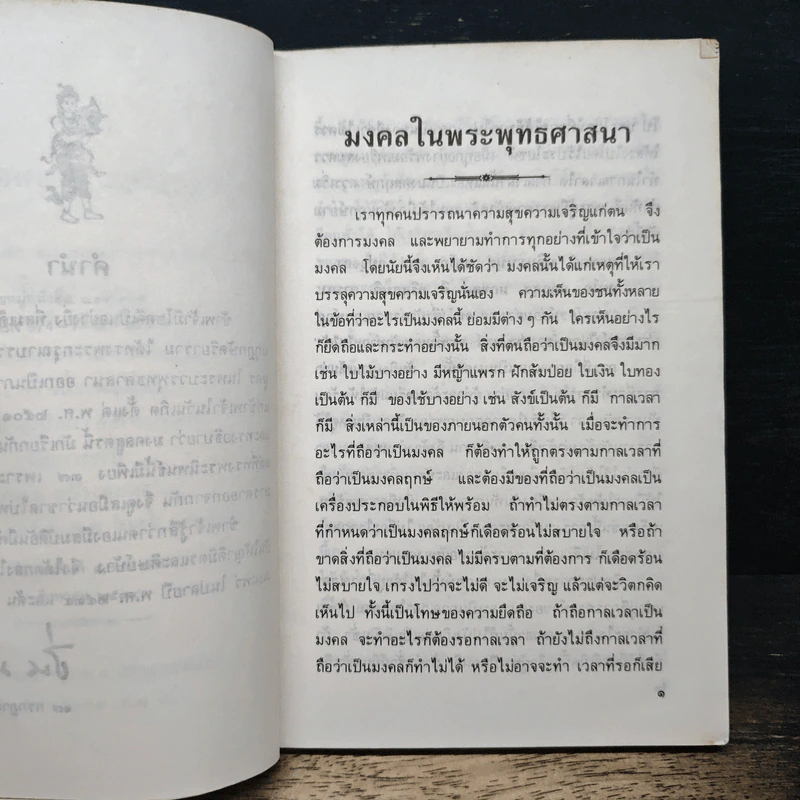 มงคลในพระพุทธศาสนา
เราทุกคนปรารถนาความสุขความเจริญแก่ตน จึง
ต้องการมงคล และพยายามทำการทุกอย่างที่เข้าใจว่าเป็น
มงคล โดยนัยนี้จึงเห็นได้ชัดว่า มงคลนั้นได้แก่เหตุที่ให้เรา
บรรลุความสุขความเจริญนั่นเอง ความเห็นของชนทั้งหลาย
ในข้อที่ว่าอะไรเป็นมงคลนี้ ย่อมมีต่าง ๆ กัน ใครเห็นอย่างไร
ก็ยึดถือและกระทำอย่างนั้น สิ่งที่ตนถือว่าเป็นมงคลจึงมีมาก
เช่น ใบไม้บางอย่าง มีหญ้าแพรก ฝักส้มป่อย ใบเงิน ใบทอง
เป็นต้น ก็มี ของใช้บางอย่าง เช่น สังข์เป็นต้น ก็มี กาลเวลา
ก็มี สิ่งเหล่านี้เป็นของภายนอกตัวคนทั้งนั้น เมื่อจะทำการ
อะไรที่ถือว่าเป็นมงคล ก็ต้องทำให้ถูกตรงตามกาลเวลาที่
ถือว่าเป็นมงคลฤกษ์ และต้องมีของที่ถือว่าเป็นมงคลเป็น
เครื่องประกอบในพิธีให้พร้อม ถ้าทำไม่ตรงตามกาลเวลา
ที่กำหนดว่าเป็นมงคลฤกษ์ก็เดือดร้อนไม่สบายใจ หรือถ้า
ขาดสิ่งที่ถือว่าเป็นมงคล ไม่มีครบตามที่ต้องการ ก็เดือดร้อน
ไม่สบายใจ เกรงไปว่าจะไม่ดี จะไม่เจริญ แล้วแต่จะวิตกคิด
เห็นไป ทั้งนี้เป็นโทษของความยึดถือ ถ้าถือกาลเวลาเป็น
มงคล จะทำอะไรก็ต้องรอกาลเวลา ถ้ายังไม่ถึงกาลเวลาที่
ถือว่าเป็นมงคลก็ทำไม่ได้ หรือไม่อาจจะทำ เวลาที่รอก็เสีย
๑